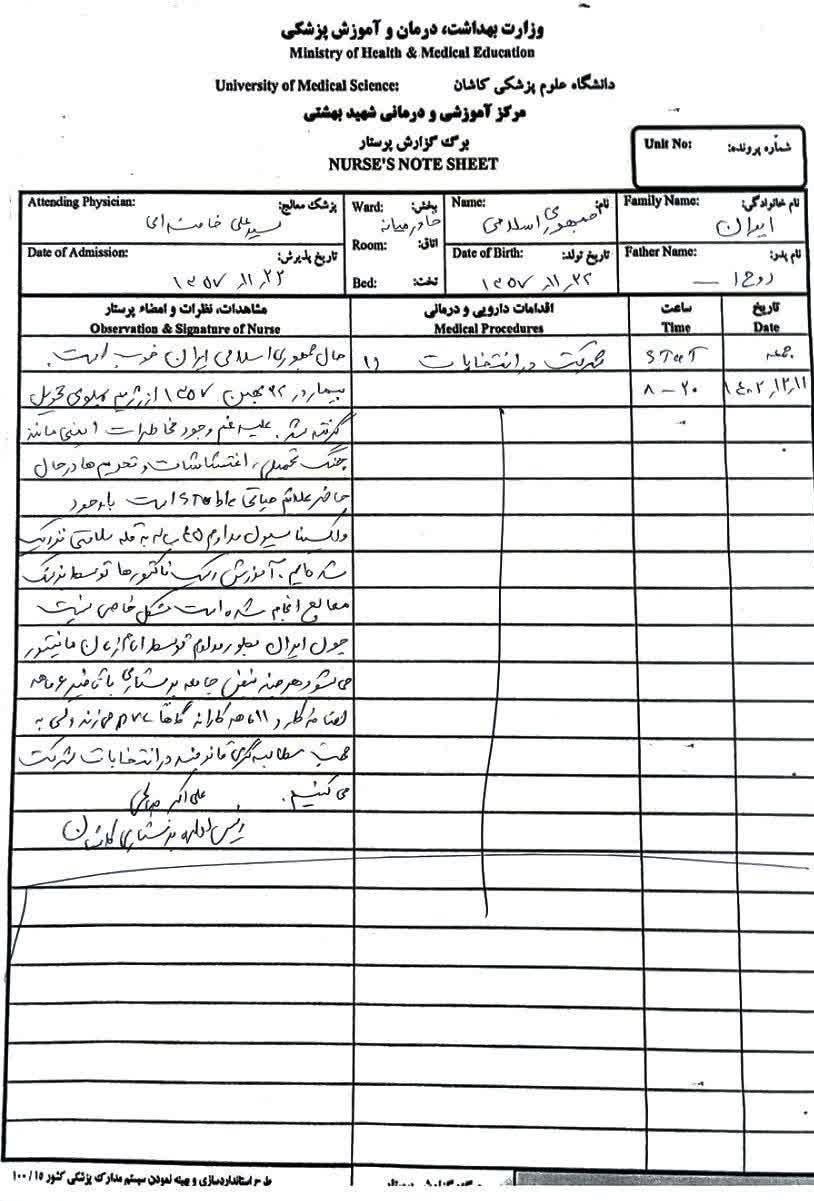 وزارت بهداشت، درمان و آموزش پزشکی
Ministry of Health & Medical Education
University of Medical Science: دانشگاه علوم پزشکی کاشان
مرکز آموزشی و درمانی شهید بهشتی
برگ گزارش پرستار
NURSE'S NOTE SHEET
Unit No: شماره پرونده:
نام خانوادگی: Family Name:
ایران
نام: Name:
جمهوری اسلامی
بخش: Ward:
خاورمیانه
پزشک معالج: Attending Physician:
سید علی خامنه ای
نام پدر: Father Name:
روح ا
تاریخ تولد: Date of Birth:
۱۳۵۷،۱۱،۲۲
اتاق: Room:
تخت: Bed:
تاریخ پذیرش: Date of Admission:
۱۳۵۷،۱۱،۲۲
تاریخ ساعت اقدامات دارویی و درمانی مشاهدات، نظرات و امضاء پرستار
Date Time Medical Procedures Observation & Signature of Nurse
جمعه STAT ۱) شرکت در انتخابات حال جمهوری اسلامی ایران خوب است.
۱۴۰۲،۱۲،۱۱ ۸ - ۲۰ بیمار در ۲۲ بهمن ۱۳۵۷ از رژیم پهلوی تحویل
گرفته شد. علیرغم وجود مخاطرات ایمنی مانند
جنگ تحمیلی، اغتشاشات و تحریم ها در حال
حاضر علائم حیاتی stable است با وجود
واکسیناسیون مداوم ۴۵ ساله به قله سلامتی نزدیک
شده ایم. آموزش ریسک فاکتورها توسط پزشک
معالج انجام شده است مشکل خاصی نیست
چون ایران بطور مداوم توسط امام زمان مانیتور
میشود هرچند نبض جامعه پرستاری با تأخیر ۶ ماهه
اضافه کار و ۱۱ ماهه کارانه گاهاً میزند ولی به
جهت مطالبه گری قانونمند در انتخابات شرکت
می کنیم. علی اکبر
رئیس اداره پرستاری کاشان
طرح استانداردسازی و بهینه نمودن سیستم مدارک پزشکی کشور ۱۰۰/۱۵